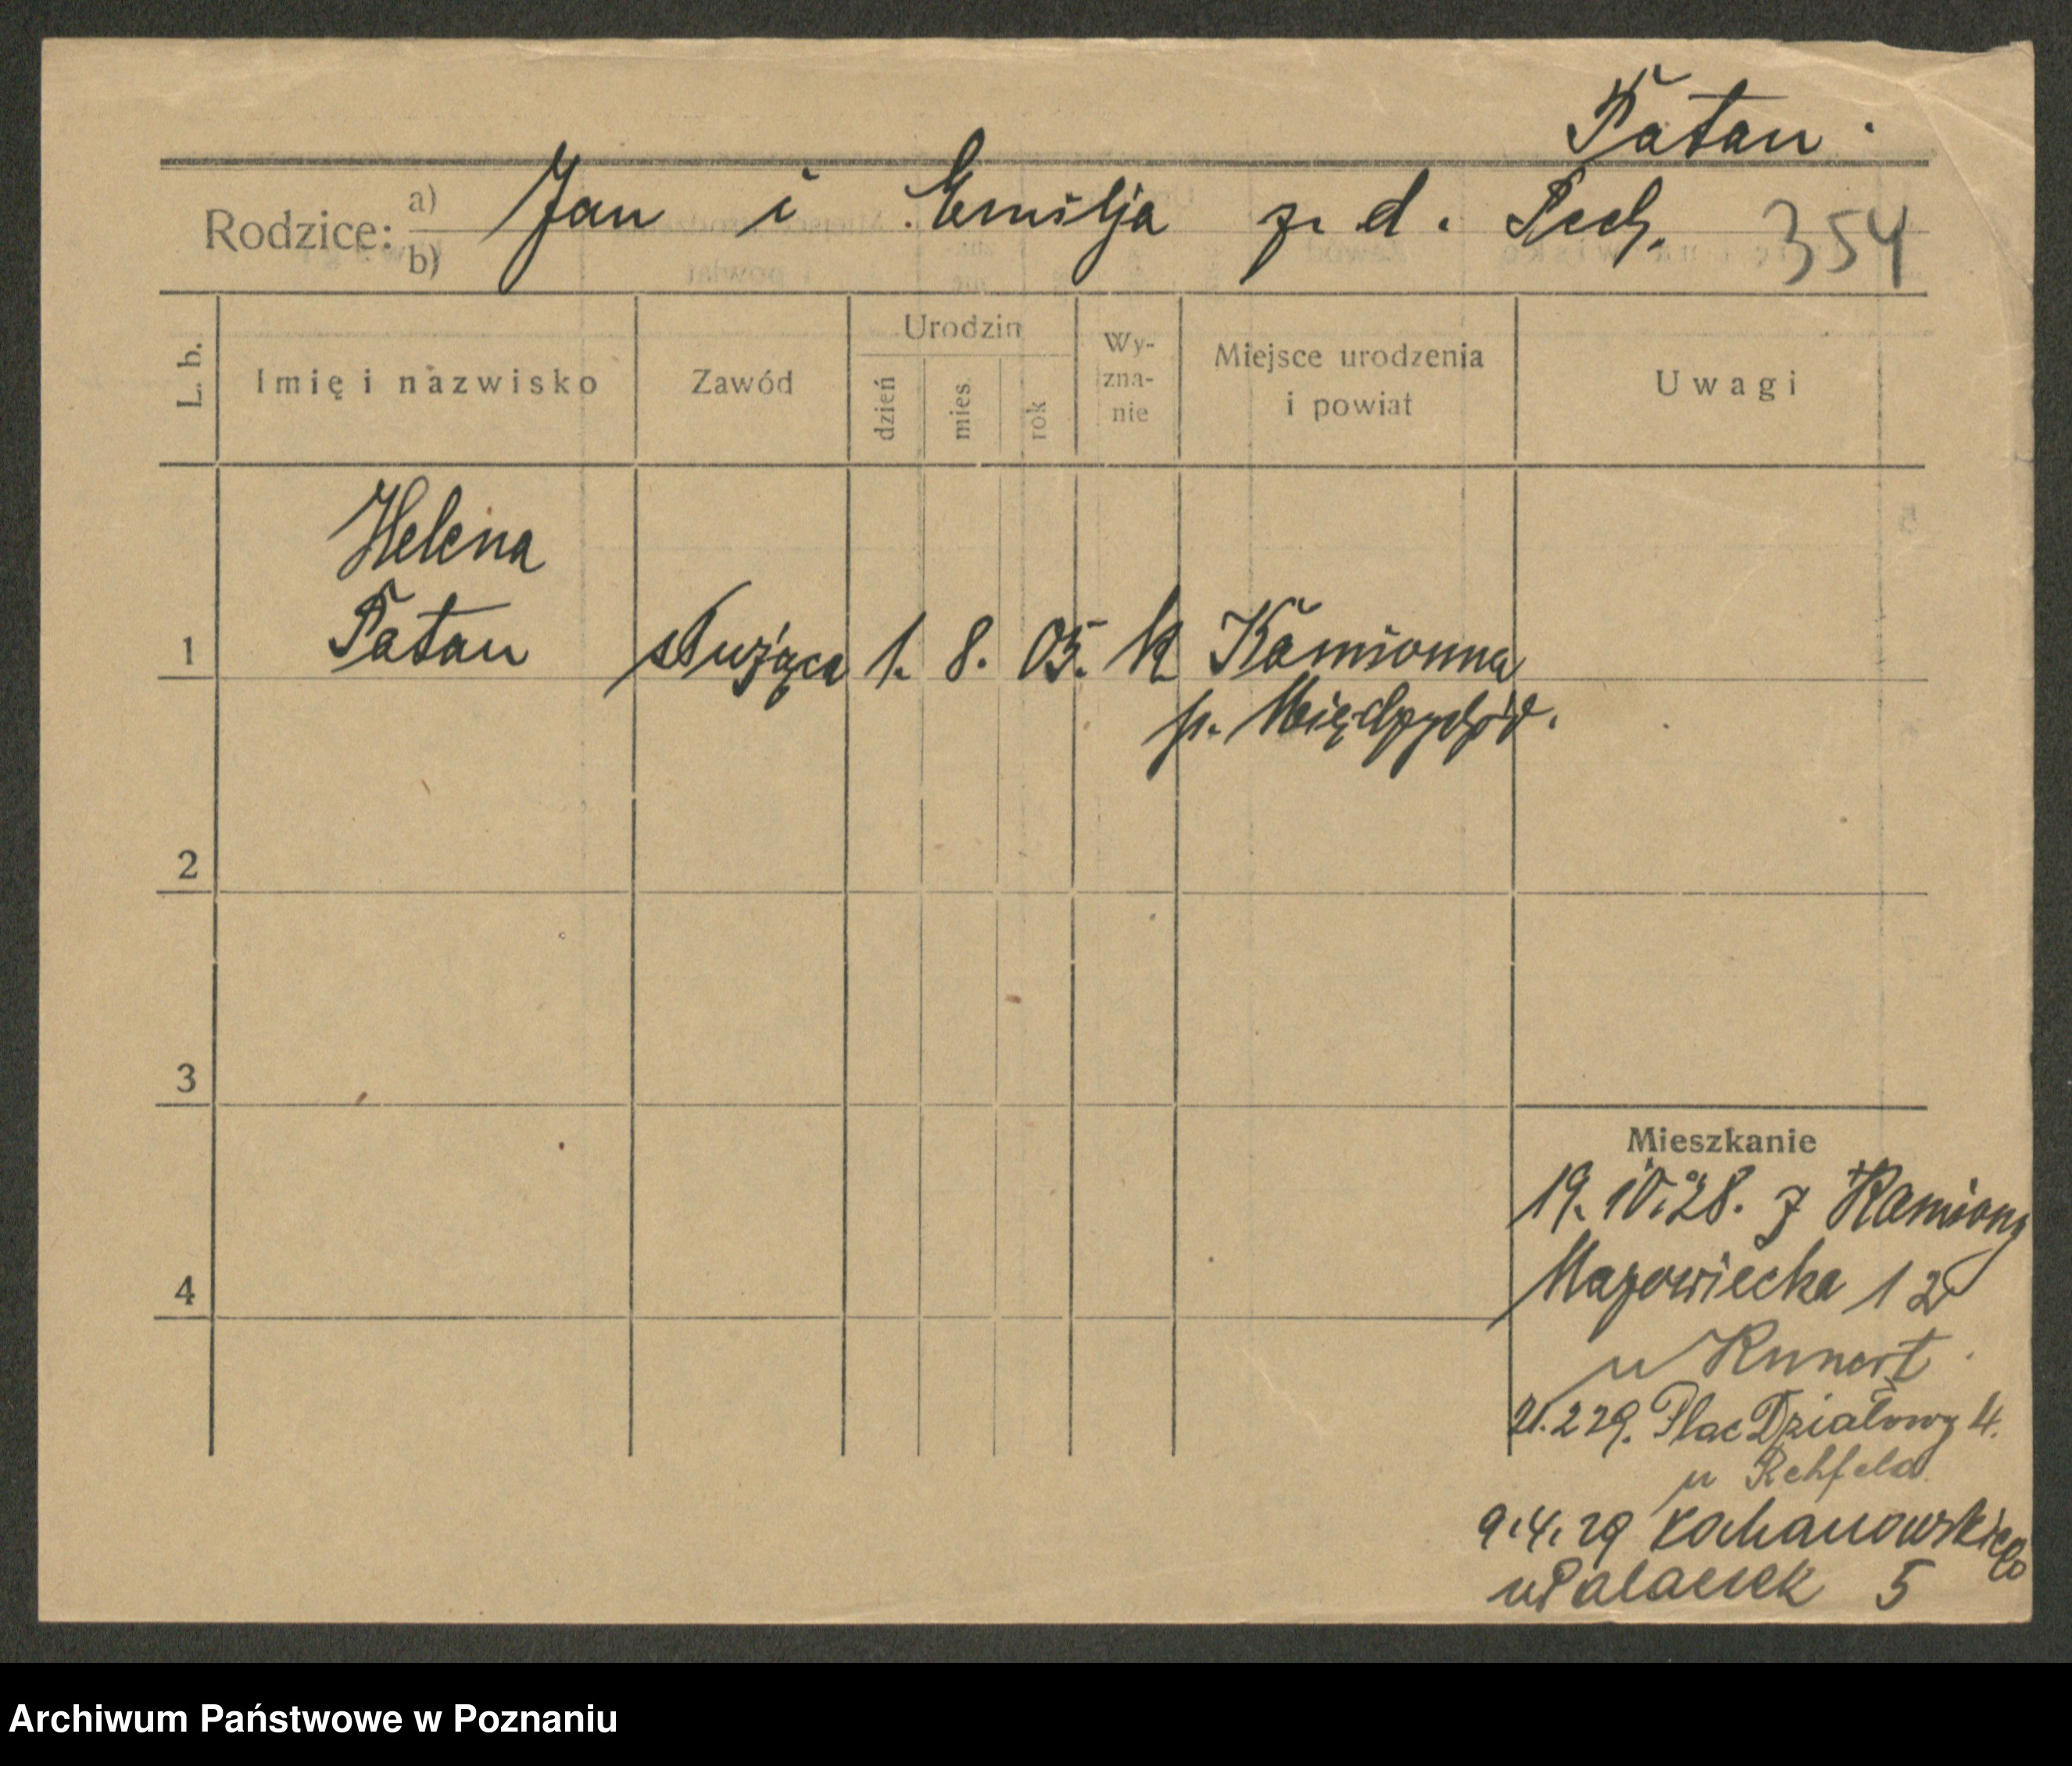 Patan.
Rodzice: a) Jan i Emilja z d. Pech.
b)
354
L. b. Imię i nazwisko Zawód Urodzin dzień mies. rok Wy-zna-nie Miejsce urodzenia i powiat Uwagi
Helena
1 Patan służąca 1. 8. 05. k Kamionna
p. Międzychód.
2
3
Mieszkanie
19.10.28. z Kamiony
4 Mazowiecka 12
u Kunert
21.2 29. Plac Działowy 4.
u Rehfeld
9.4.29 Kochanowskiego
u Palaczek 5
Archiwum Państwowe w Poznaniu